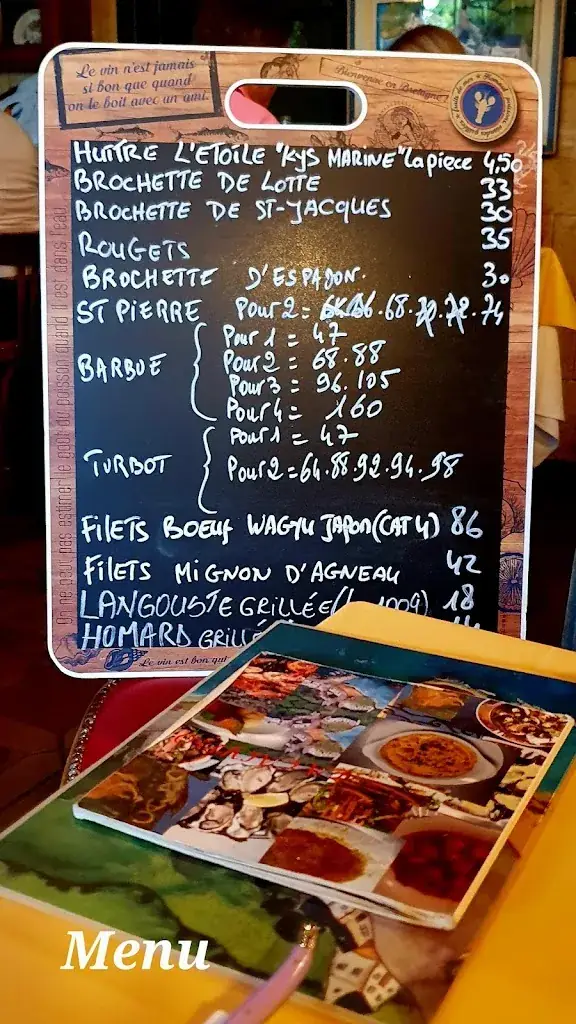 Le vin n'est jamais
si bon que quand
on le boit avec un ami.
Bienvenue en Bretagne!
HUITRE L'ETOILE "KYS MARINE" la piece 4,50
BROCHETTE DE LOTTE 33
BROCHETTE DE ST-JACQUES 30
ROUGETS 35
BROCHETTE D'ESPADON. 30
ST PIERRE Pour 2 = 68. 74
BARBUE
Pour 1 = 47
Pour 2 = 68.88
Pour 3 = 96.105
Pour 4 = 160
TURBOT
Pour 1 = 47
Pour 2 = 64.88.92.94.98
FILETS BOEUF WAGYU JAPON (CAT 4) 86
FILETS MIGNON D'AGNEAU 42
LANGOUSTE GRILLÉE (100g) 18
HOMARD GRILLÉ
Le vin est bon qui
Menu